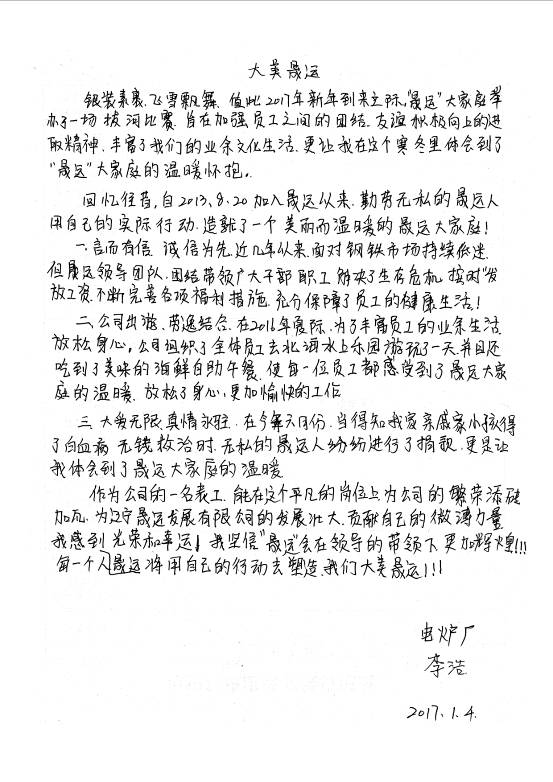 大美晟运
银装素裹、飞雪飘舞、值此2017年新年到来之际,"晟运"大家庭举
办了一场 拔河比赛、旨在加强员工之间的团结、友谊积极向上的进
取精神、丰富了我们的业余文化生活、更让我在这个寒冬里体会到了
"晟运"大家庭的温暖怀抱。
回忆往昔,自2013.8.20加入晟运以来、勤劳无私的晟运人
用自己的实际行动、造就了一个美丽而温暖的晟运大家庭!
一、言而有信、诚信为先、近几年以来、面对钢铁市场持续低迷、
但晟运领导团队、团结带领广大干部职工、解决了生存危机、按时发
放工资、不断完善各项福利措施、充分保障了员工的健康生活!
二、公司出游、劳逸结合、在2016年夏际、为了丰富员工的业余生活、
放松身心,公司组织了全体员工去北海水上乐园游玩了一天、并且还
吃到了美味的海鲜自助午餐、使每一位员工都感受到了晟运大家
庭的温暖、放松了身心,更加愉快的工作
三、大爱无限、真情永驻、在今年六月份、当得知我家亲戚家小孩得
了白血病 无钱救治时、无私的晟运人纷纷进行了捐款、更是让
我体会到了晟运大家庭的温暖
作为公司的一名员工、能在这个平凡的岗位上为公司的繁荣添砖
加瓦、为辽宁晟运发展有限公司的发展壮大、贡献自己的微薄力量
我感到光荣和幸运!我坚信"晟运"会在领导的带领下更加辉煌!!!
每一个人晟运将用自己的行动去塑造、我们大美晟运!!!
电炉厂
李浩
2017.1.4.